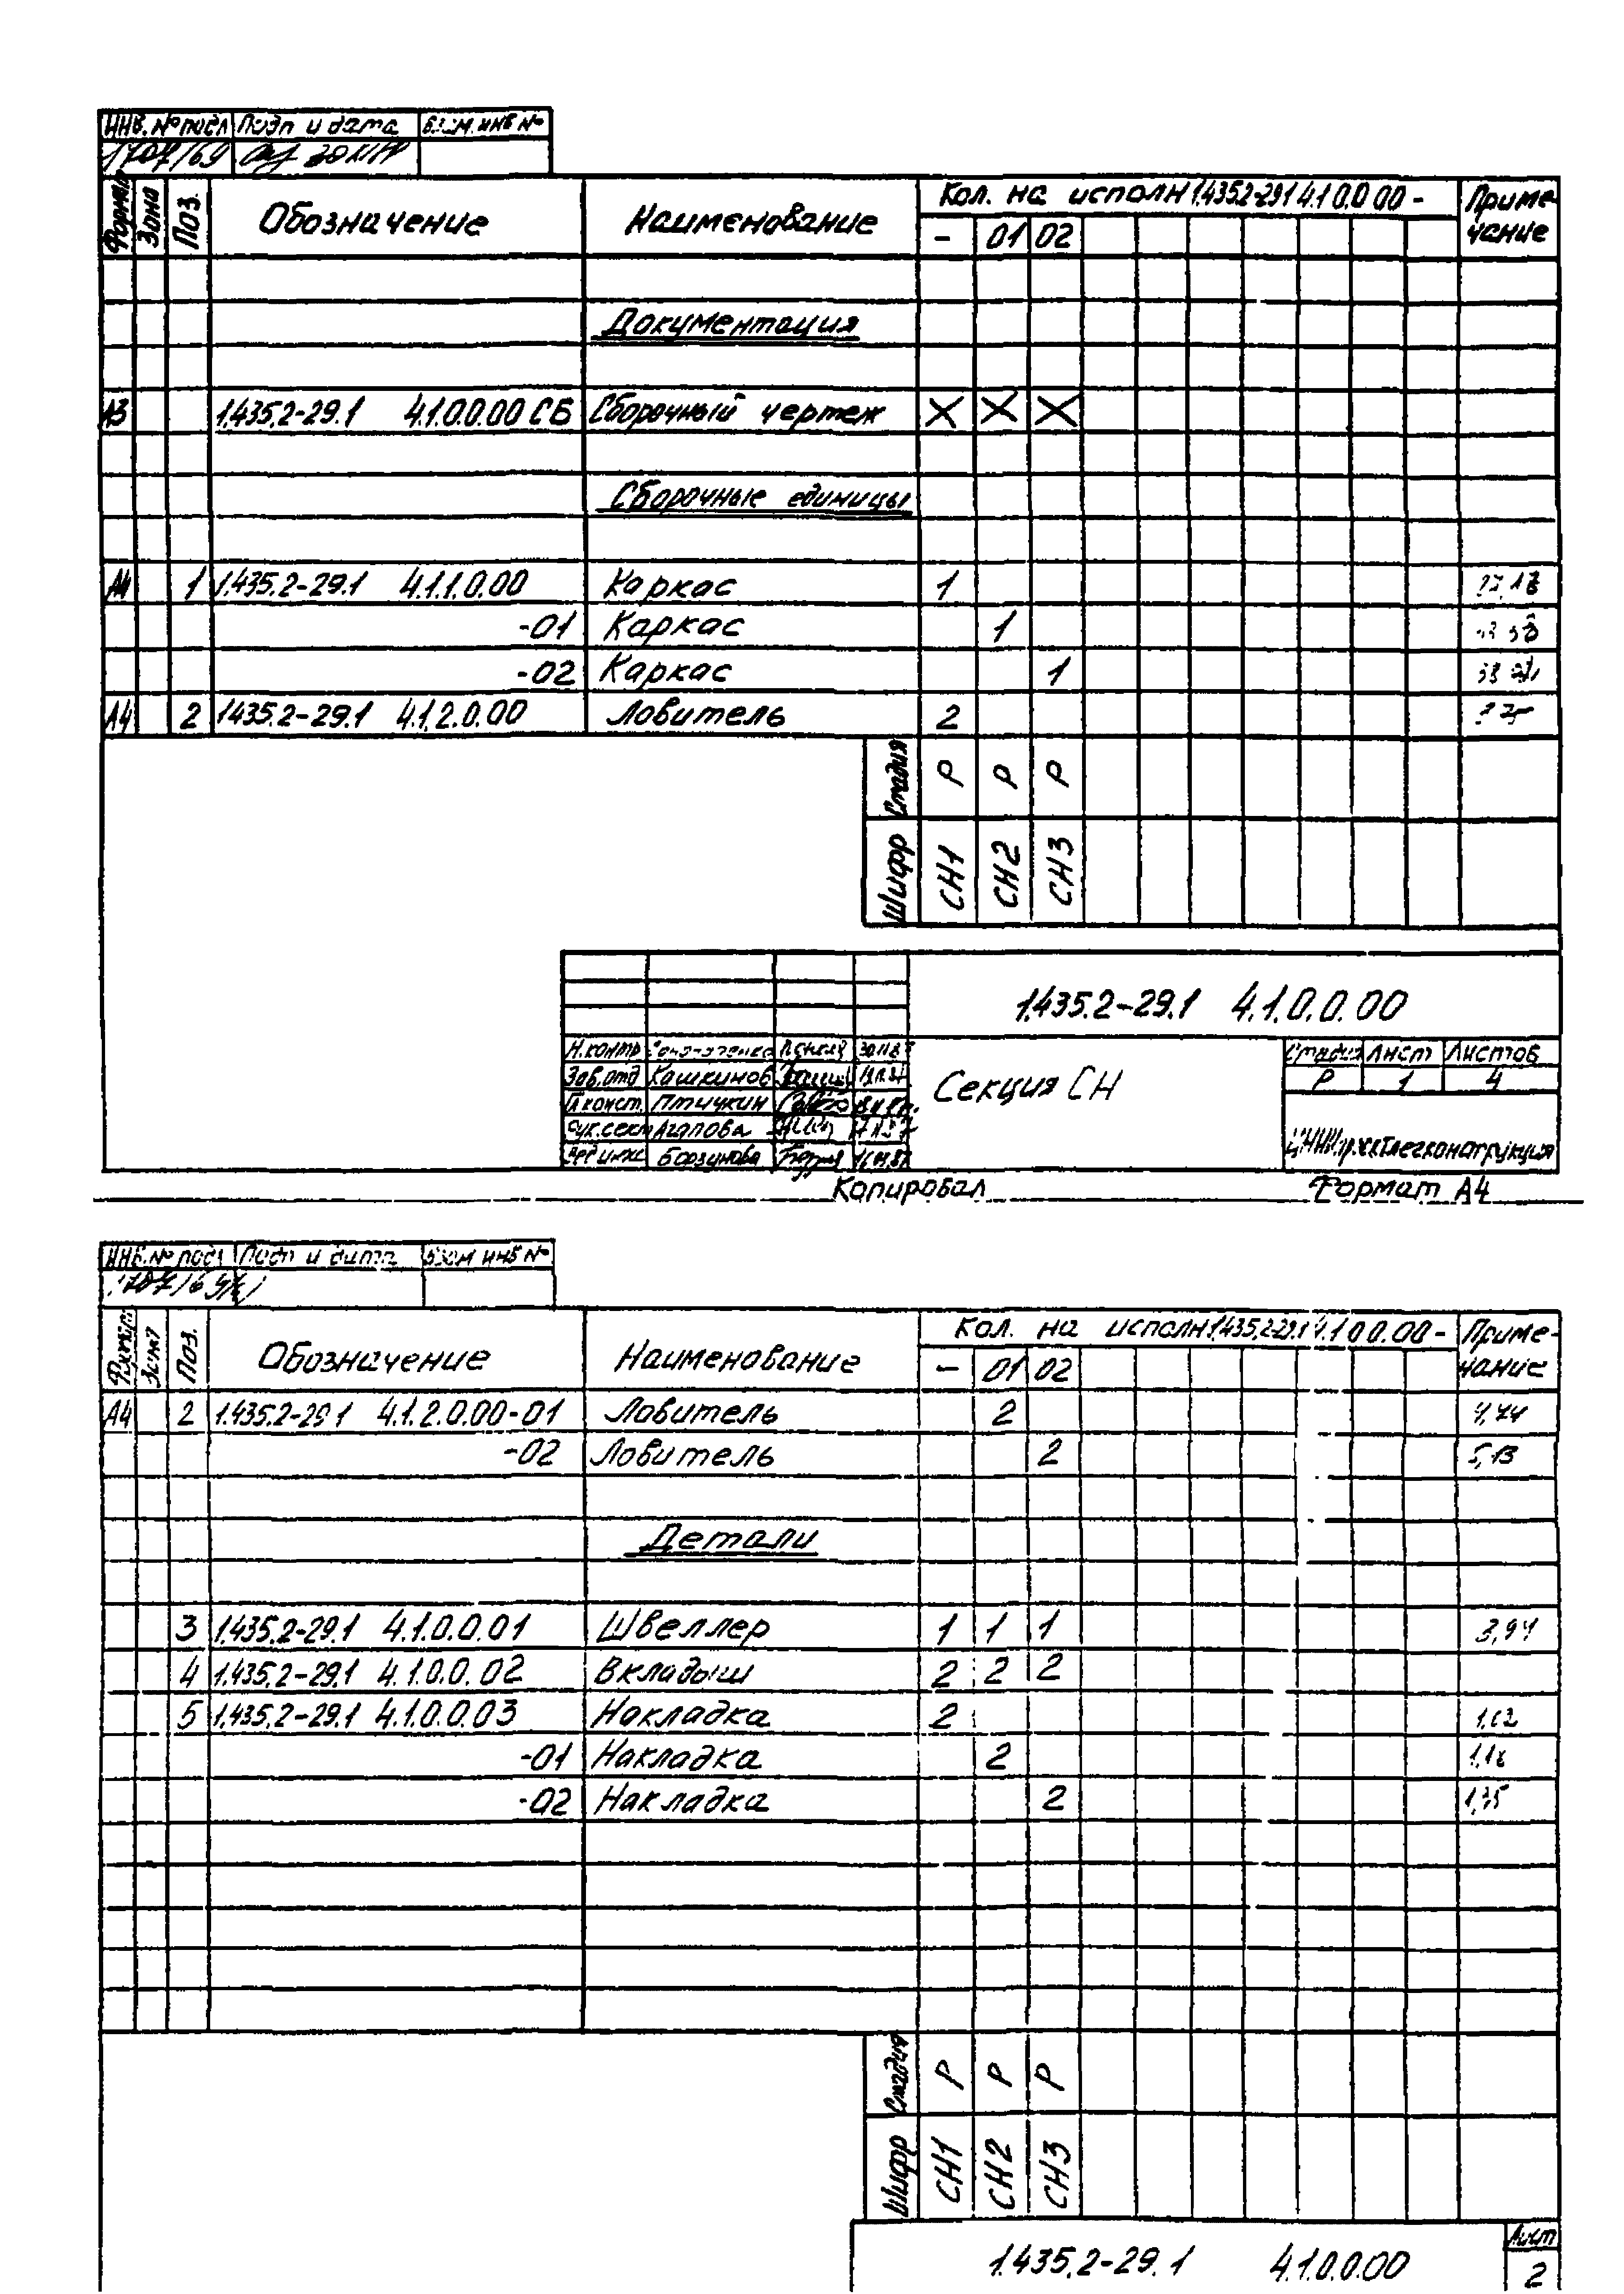 Инв. № подл Подп и дата Взам. инв №
1707/69
Формат Зона Поз. Обозначение Наименование Кол. на исполн 1.435.2-29.1 4.1.0.0.00 - Приме-
чание
- 01 02
Документация
А3 1.435.2-29.1 4.1.0.0.00 СБ Сборочный чертеж X X X
Сборочные единицы
А4 1 1.435.2-29.1 4.1.1.0.00 Каркас 1
-01 Каркас 1
-02 Каркас 1
А4 2 1.435.2-29.1 4.1.2.0.00 Ловитель 2
Стадия Р Р Р
Шифр СН1 СН2 СН3
1.435.2-29.1 4.1.0.0.00
Н.контр
Зав.отд Кашкинов
Гл.конст. Птичукин
Рук.сект Агапова
Вед.инж Борзунова
Секция СН
Стадия Лист Листов
Р 1 4
ЦНИИпроектлегконструкция
Копировал Формат А4
Инв. № подл Подп и дата Взам инв №
1707/69
Формат Зона Поз. Обозначение Наименование Кол. на исполн 1.435.2-29.1 4.1.0.0.00- Приме-
чание
- 01 02
А4 2 1.435.2-29.1 4.1.2.0.00-01 Ловитель 2 4,44
-02 Ловитель 2 5,13
Детали
3 1.435.2-29.1 4.1.0.0.01 Швеллер 1 1 1 3,94
4 1.435.2-29.1 4.1.0.0.02 Вкладыш 2 2 2
5 1.435.2-29.1 4.1.0.0.03 Накладка 2 1,02
-01 Накладка 2 1,18
-02 Накладка 2 1,35
Стадия Р Р Р
Шифр СН1 СН2 СН3
1.435.2-29.1 4.1.0.0.00
Лист
2